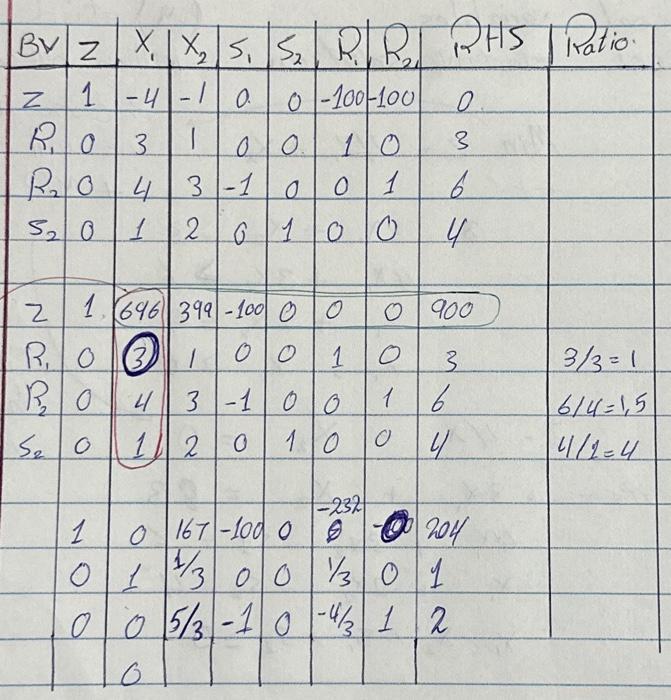 BV Z X₁ X₂ S₁ S₂ R₁ R₂ RHS Ratio.
Z 1 -4 -1 0 0 -100 -100 0
R₁ 0 3 1 0 0 1 0 3
R₂ 0 4 3 -1 0 0 1 6
S₂ 0 1 2 0 1 0 0 4
Z 1 696 399 -100 0 0 0 900
R₁ 0 3 1 0 0 1 0 3 3/3=1
R₂ 0 4 3 -1 0 0 1 6 6/4=1,5
S₂ 0 1 2 0 1 0 0 4 4/1=4
-232
1 0 167 -100 0 0 204
0 1 1/3 0 0 1/3 0 1
0 0 5/3 -1 0 -4/3 1 2
0